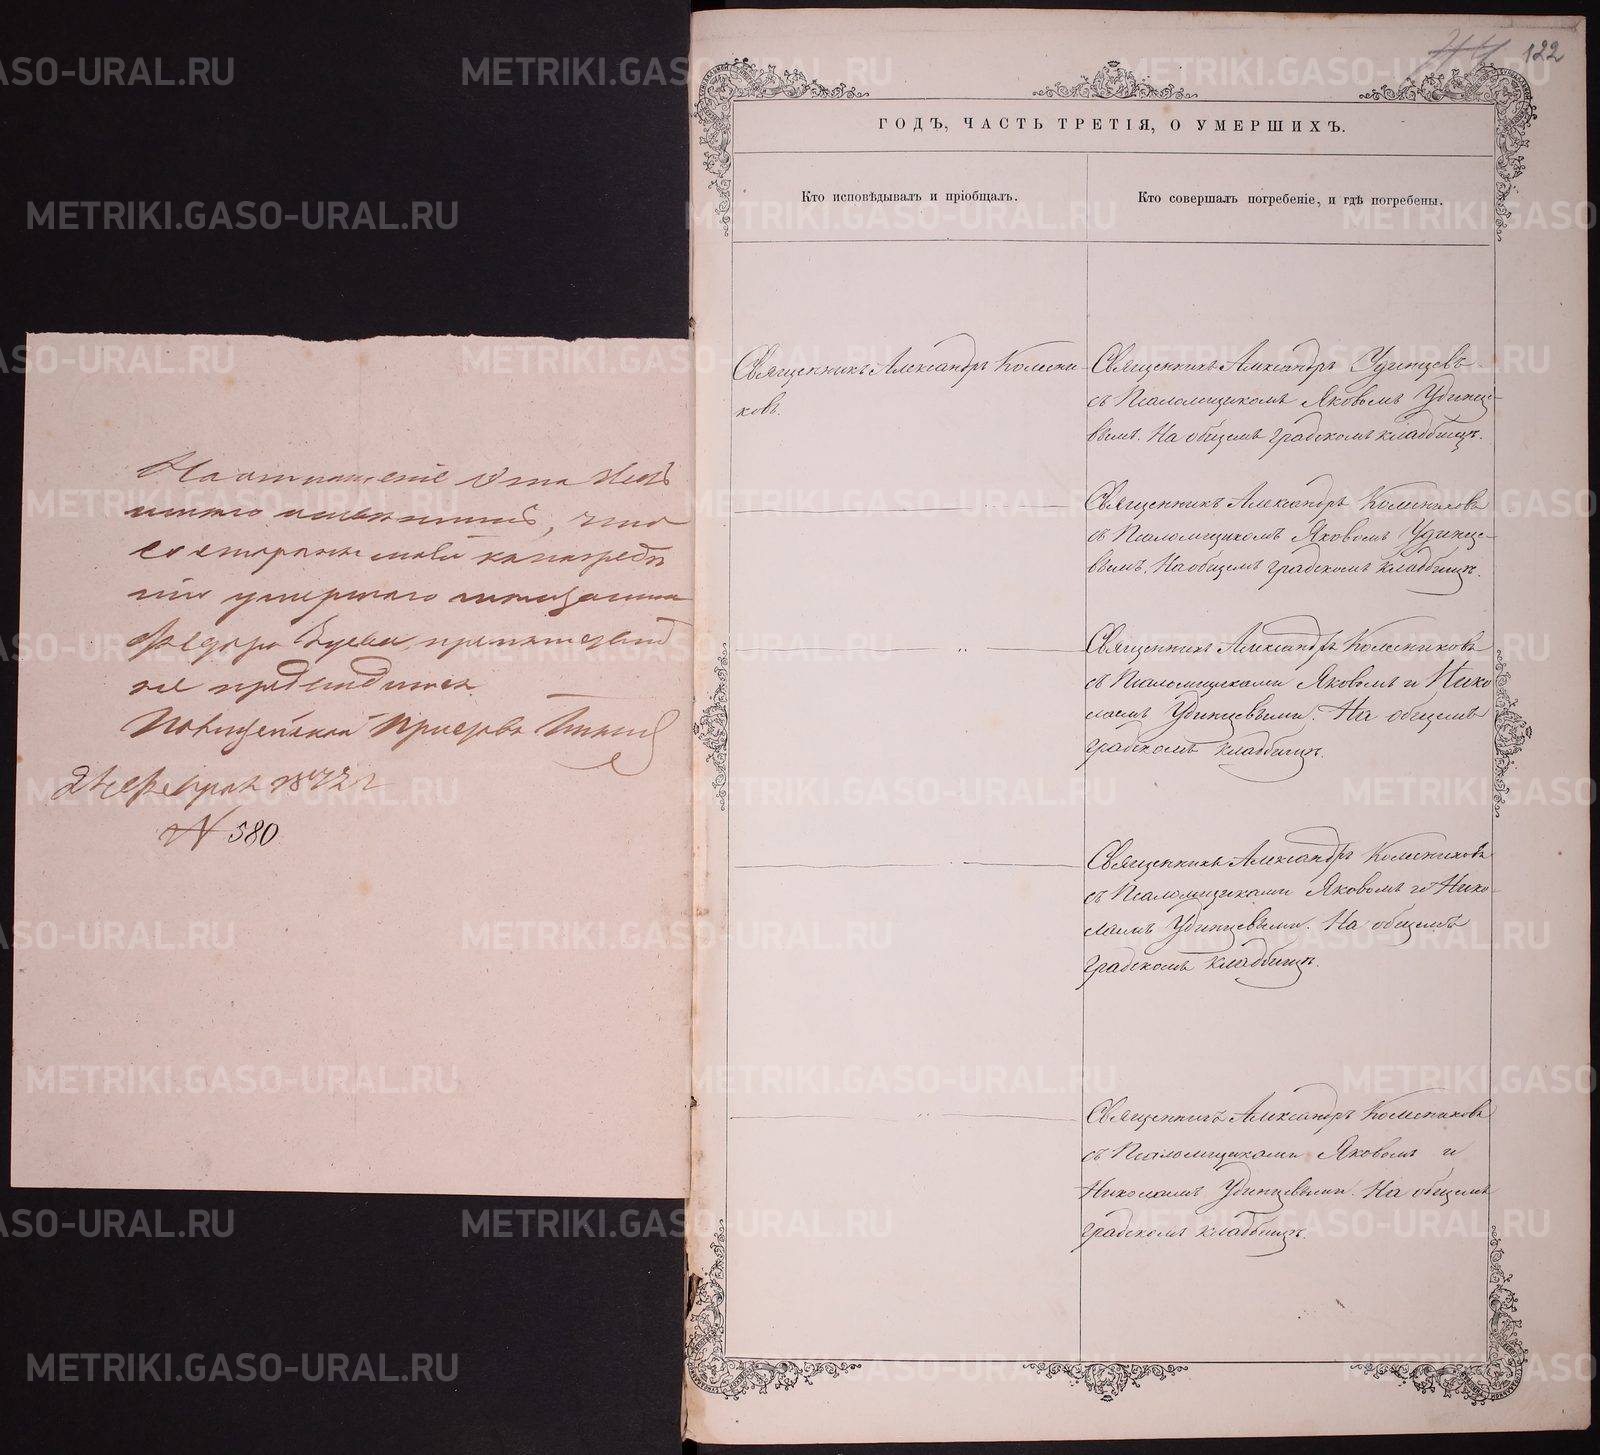 На отношение Отца
что
со стороны моей к погребе
нию умершаго
Федора Зуева, препятствий
не предвидится
Полицейской Приставъ
февраля 1872 г
№ 580
122
ГОДЪ, ЧАСТЬ ТРЕТІЯ, О УМЕРШИХЪ.
Кто исповѣдывалъ и пріобщалъ.
Кто совершалъ погребеніе, и гдѣ погребены.
Священникъ Александръ Колесни-
ковъ.
Священникъ Александръ Удинцевъ
съ Псаломщикомъ Яковомъ Удинце-
вымъ. На общемъ градскомъ кладбищѣ.
Священникъ Александръ Колесниковъ
съ Псаломщикомъ Яковомъ Удинце-
вымъ. На общемъ градскомъ кладбищѣ.
Священникъ Александръ Колесниковъ
съ Псаломщиками Яковомъ и Нико
лаемъ Удинцевыми. На общемъ
градскомъ кладбищѣ.
Священникъ Александръ Колесниковъ
съ Псаломщиками Яковомъ и Нико-
лаемъ Удинцевыми. На общемъ
градскомъ кладбищѣ.
Священникъ Александръ Колесниковъ
съ Псаломщиками Яковомъ и
Николаемъ Удинцевыми. На общемъ
градскомъ кладбищѣ.
METRIKI.GASO-URAL.RU